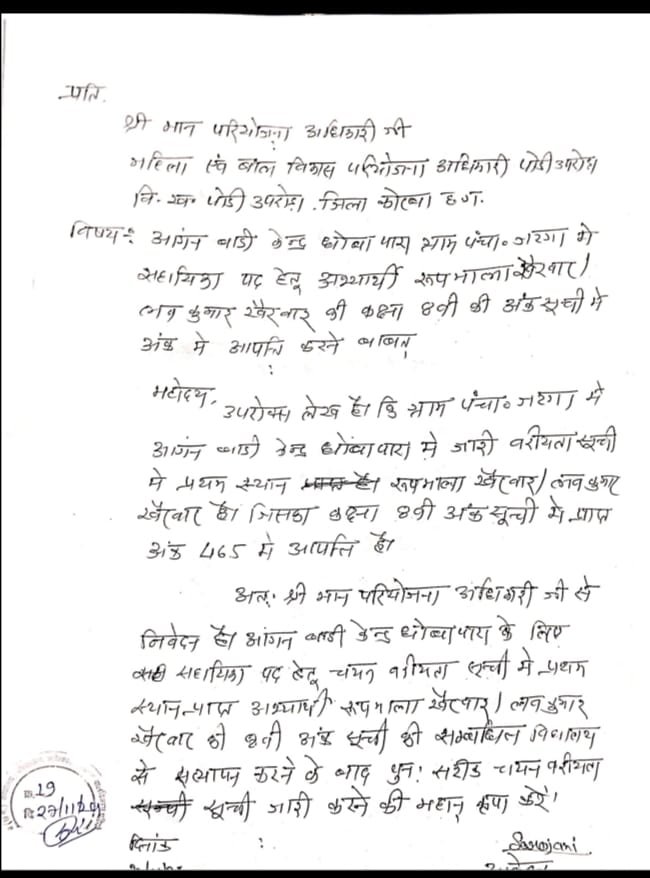 प्रति.
श्री मान परियोजना अधिकारी जी
महिला एवं बाल विकास परियोजना अधिकारी पोडी उपरोडा
वि. ख. पोडी उपरोडा. जिला कोरबा छ.ग.
विषय:- आगंन बाडी केन्द्र धोबापारा ग्राम पंचा० जटगा मे
सहायिका पद हेतू अभ्यार्थी रूपमाला खैरवार/
लव कुमार खैरवार की कक्षा 8वी की अंक सूची मे
अंक मे आपत्ति करने बाबत्
महोदय,
उपरोक्त लेख है। कि ग्राम पंचा० जटगा मे
आगंन बाडी केन्द्र धोबापारा मे जारी वरीयता सूची
मे प्रथम स्थान रूपमाला खैरवार/लव कुमार
खैरवार है। जिसका कक्षा 8वी अंक सूची मे प्राप्त
अंक 465 मे आपत्ति है।
अतः श्री मान परियोजना अधिकारी जी से
निवेदन है। आंगन बाडी केन्द्र धोबापारा के लिए
सहायिका पद हेतू चयन वरीयता सूची मे प्रथम
स्थान प्राप्त अभ्यार्थी रूपमाला खैरवार/लव कुमार
खैरवार की 8वी अंक सूची की सम्बंधित विद्यालय
से सत्यापन करने के बाद पुनः सही चयन वरीयता
सूची जारी करने की महान् कृपा करें।
क्र. 29
दि. 27/11/24
दिनांक
Sarojani